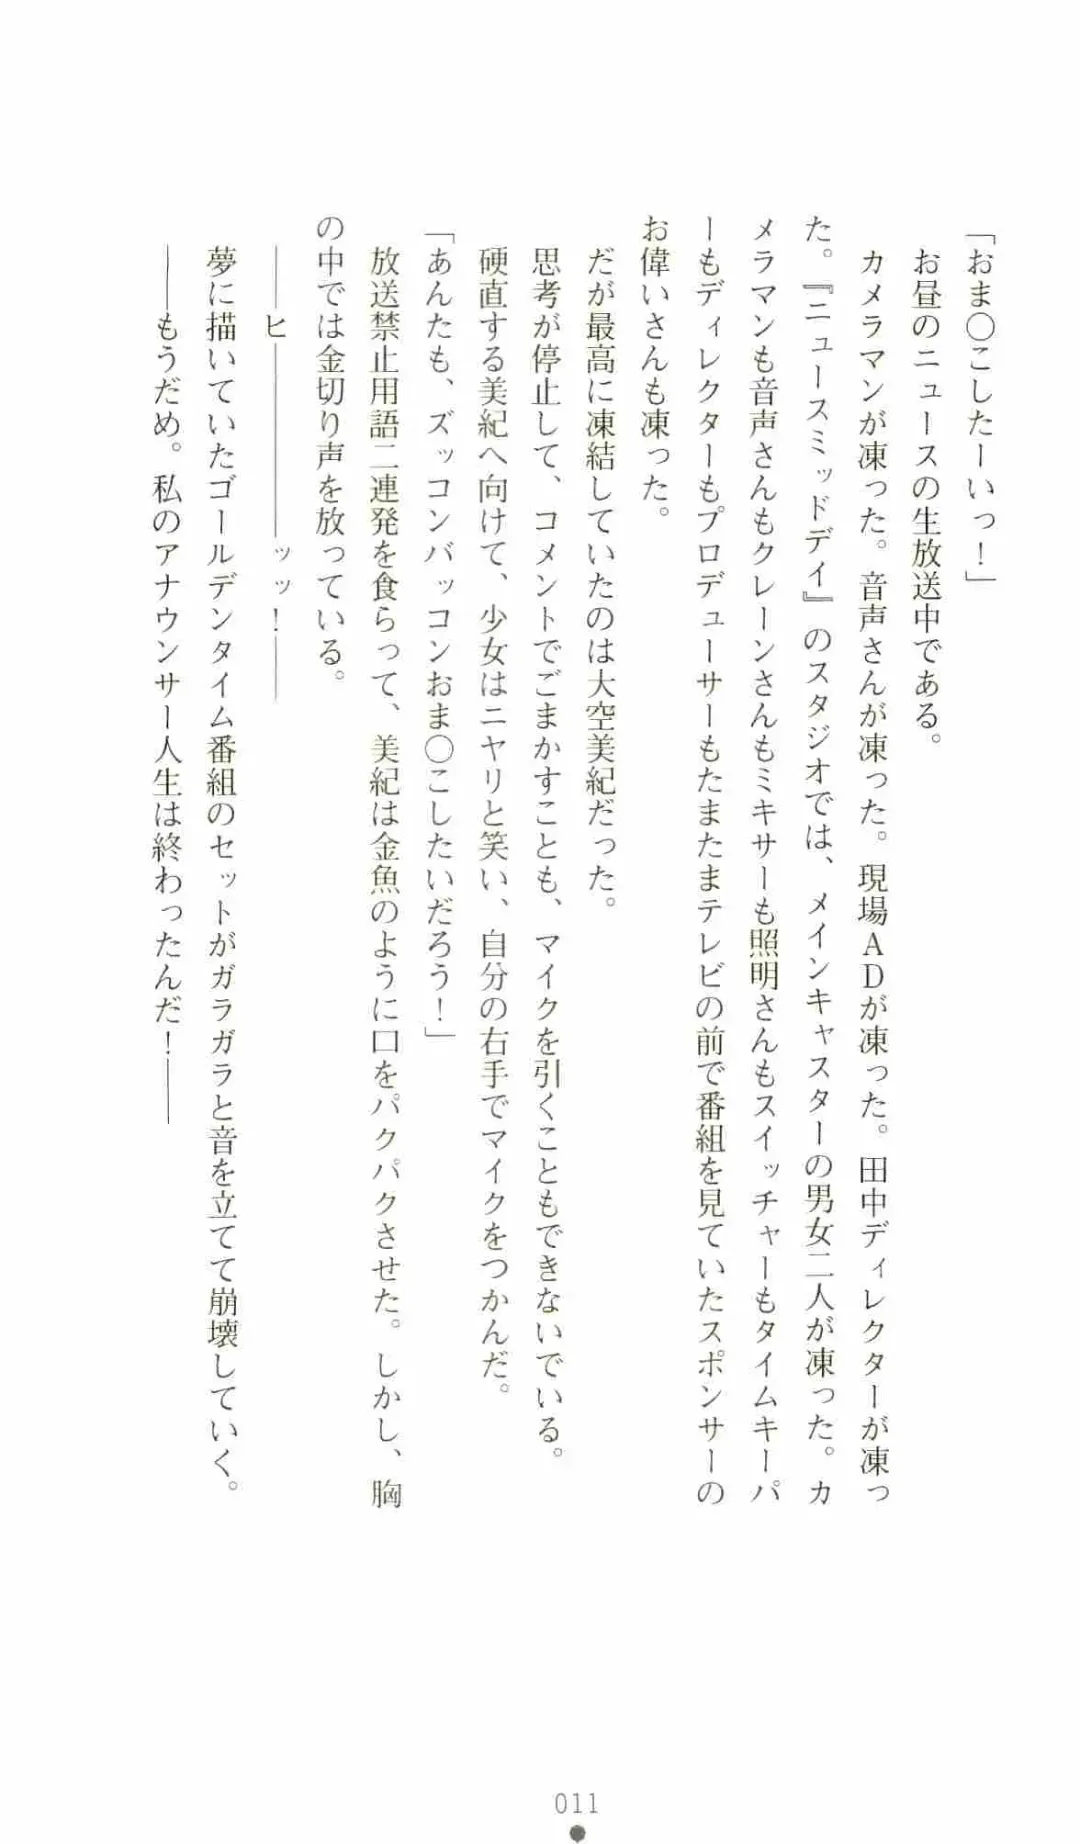 「おま〇こしたーいっ！」
　お昼のニュースの生放送中である。
　カメラマンが凍った。音声さんが凍った。現場ＡＤが凍った。田中ディレクターが凍っ
た。『ニュースミッドデイ』のスタジオでは、メインキャスターの男女二人が凍った。カ
メラマンも音声さんもクレーンさんもミキサーも照明さんもスイッチャーもタイムキーパ
ーもディレクターもプロデューサーもたまたまテレビの前で番組を見ていたスポンサーの
お偉いさんも凍った。
　だが最高に凍結していたのは大空美紀だった。
　思考が停止して、コメントでごまかすことも、マイクを引くこともできないでいる。
　硬直する美紀へ向けて、少女はニヤリと笑い、自分の右手でマイクをつかんだ。
「あんたも、ズッコンバッコンおま〇こしたいだろう！」
　放送禁止用語二連発を食らって、美紀は金魚のように口をパクパクさせた。しかし、胸
の中では金切り声を放っている。
　――ヒ――――――ッッ！――
　夢に描いていたゴールデンタイム番組のセットがガラガラと音を立てて崩壊していく。
　――もうだめ。私のアナウンサー人生は終わったんだ！――
011